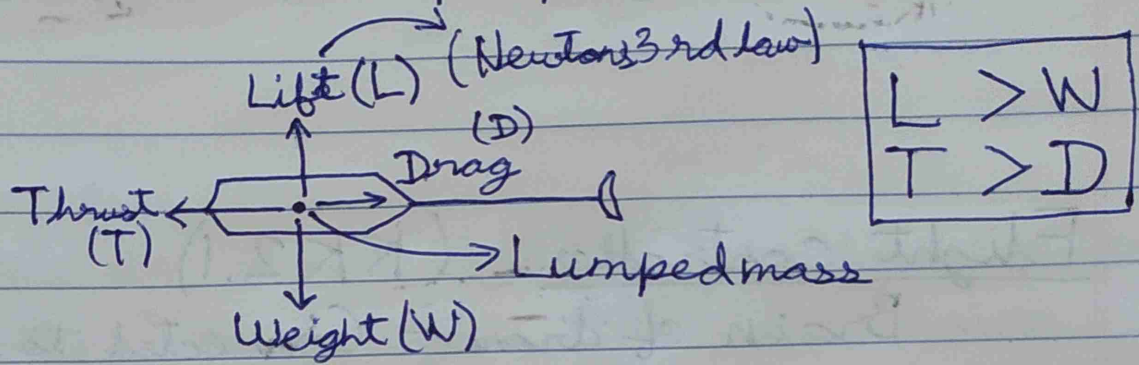 Lift (L) (Newtons 3rd law)
(D)
Drag
Thrust
(T)
Lumped mass
Weight (W)
L > W
T > D